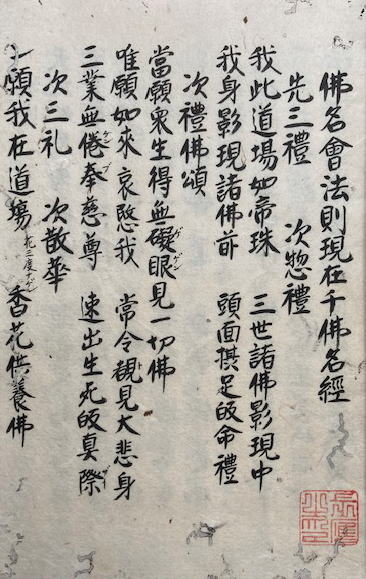 佛名會法則現在千佛名經
先三禮　次惣禮
我此道場如帝珠　三世諸佛影現中
我身影現諸佛前　頭面摂足皈命禮
次禮佛頌
當願衆生得無礙眼見一切佛
唯願如來哀愍我　常令覩見大悲身
三業無倦奉慈尊　速出生死皈真際
次三礼　次散華
一願我在道場　香花供養佛